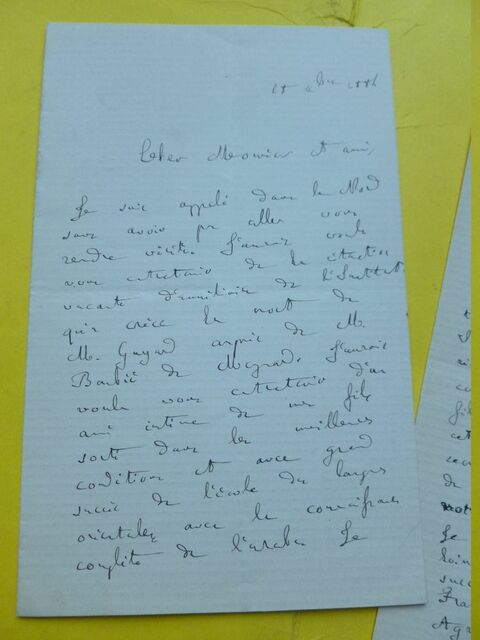 Cher Monsieur et ami,
Je suis appelé dans le Nord
sans avoir pu aller vous
rendre visite. J'aurais voulu
vous entretenir de la situation
vacante d'auxiliaire de l'Institut
qu'a créée la mort de
M. Guyard auprès de M.
Barbié de Meynard. J'aurais
voulu vous entretenir d'un
ami intime de mon fils
sorti dans les meilleures
conditions et avec grand
succès de l'école des langues
orientales avec la connaissance
complète de l'arabe. Je